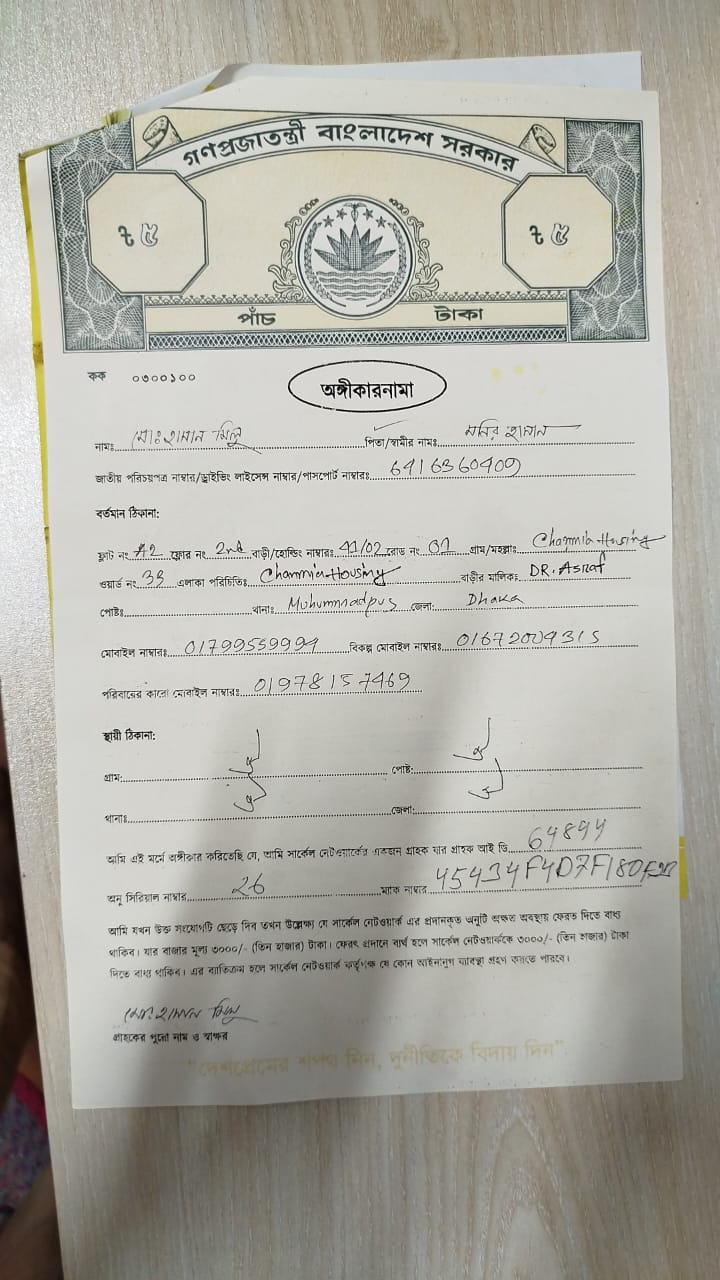 গণপ্রজাতন্ত্রী বাংলাদেশ সরকার
৳ ৫ ৳ ৫
পাঁচ টাকা
কক ০৩০০১০০
অঙ্গীকারনামা
নামঃ মোঃ হাসান মিলু পিতা/স্বামীর নামঃ মনির হাসান
জাতীয় পরিচয়পত্র নাম্বার/ড্রাইভিং লাইসেন্স নাম্বার/পাসপোর্ট নাম্বারঃ 6416360409
বর্তমান ঠিকানা:
ফ্লাট নং A2 ফ্লোর নং 2nd বাড়ী/হোল্ডিং নাম্বারঃ 41/02 রোড নং 01 গ্রাম/মহল্লাঃ Housing
ওয়ার্ড নং 33 এলাকা পরিচিতিঃ Housing বাড়ীর মালিকঃ DR. Asraf
পোষ্টঃ থানাঃ Muhummadpur জেলা: Dhaka
মোবাইল নাম্বারঃ 01799559994 বিকল্প মোবাইল নাম্বারঃ 01672004315
পরিবারের কারো মোবাইল নাম্বারঃ 01978157469
স্থায়ী ঠিকানা:
গ্রাম: পোষ্ট:
থানাঃ জেলা:
আমি এই মর্মে অঙ্গীকার করিতেছি যে, আমি সার্কেল নেটওয়ার্কের একজন গ্রাহক যার গ্রাহক আই ডি 64894
অনু সিরিয়াল নাম্বার 26 ম্যাক নাম্বার
আমি যখন উক্ত সংযোগটি ছেড়ে দিব তখন উল্লেক্ষ্য যে সার্কেল নেটওয়ার্ক এর প্রদানকৃত অনুটি অক্ষত অবস্থায় ফেরত দিতে বাধ্য
থাকিব। যার বাজার মূল্য ৩০০০/- (তিন হাজার) টাকা। ফেরৎ প্রদানে ব্যর্থ হলে সার্কেল নেটওয়ার্ককে ৩০০০/- (তিন হাজার) টাকা
দিতে বাধ্য থাকিব। এর ব্যতিক্রম হলে সার্কেল নেটওয়ার্ক কর্তৃপক্ষ যে কোন আইনানুগ ব্যাবস্থা গ্রহণ করতে পারবে।
মোঃ হাসান মিলু
গ্রাহকের পুরো নাম ও স্বাক্ষর
"দেশপ্রেমের শপথ নিন, দুর্নীতিকে বিদায় দিন"